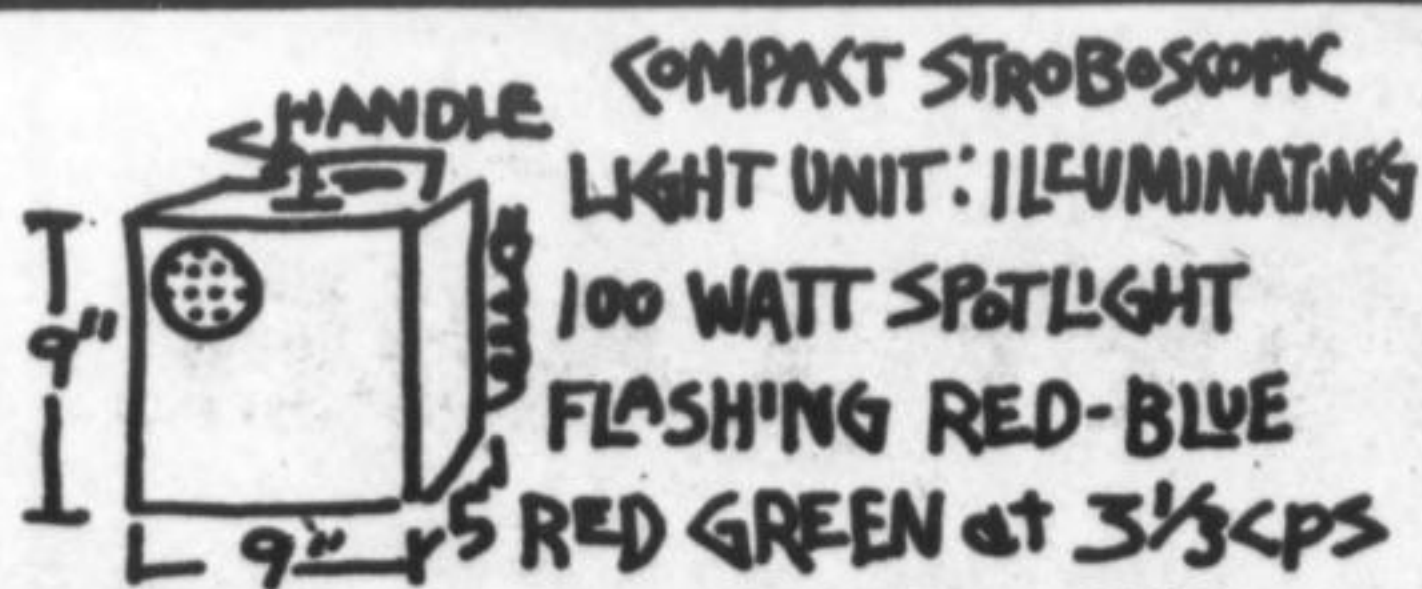 HANDLE
COMPACT STROBOSCOPIC
LIGHT UNIT: ILLUMINATING
100 WATT SPOTLIGHT
FLASHING RED-BLUE
RED GREEN at 3⅓cps
9"
9"
5"